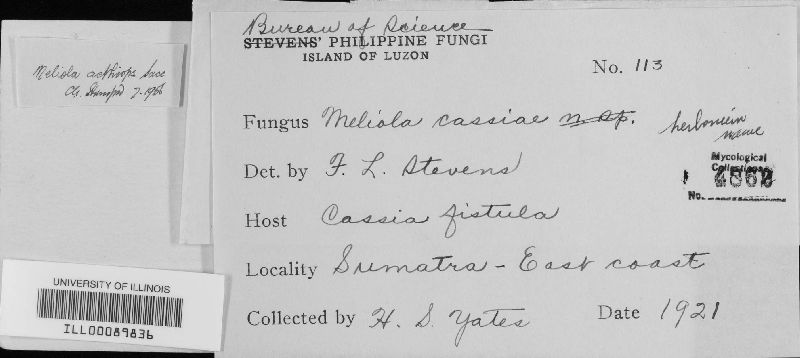 Bureau of Science
STEVENS' PHILIPPINE FUNGI
ISLAND OF LUZON
No. 113
Meliola aethiops Sacc
7-1986
Fungus Meliola cassiae n. sp. herbarium name
Det. by F. L. Stevens
Mycological
Collections
No.
Host Cassia fistula
Locality Sumatra - East coast
Collected by H. S. Yates Date 1921
UNIVERSITY OF ILLINOIS
ILL00089836